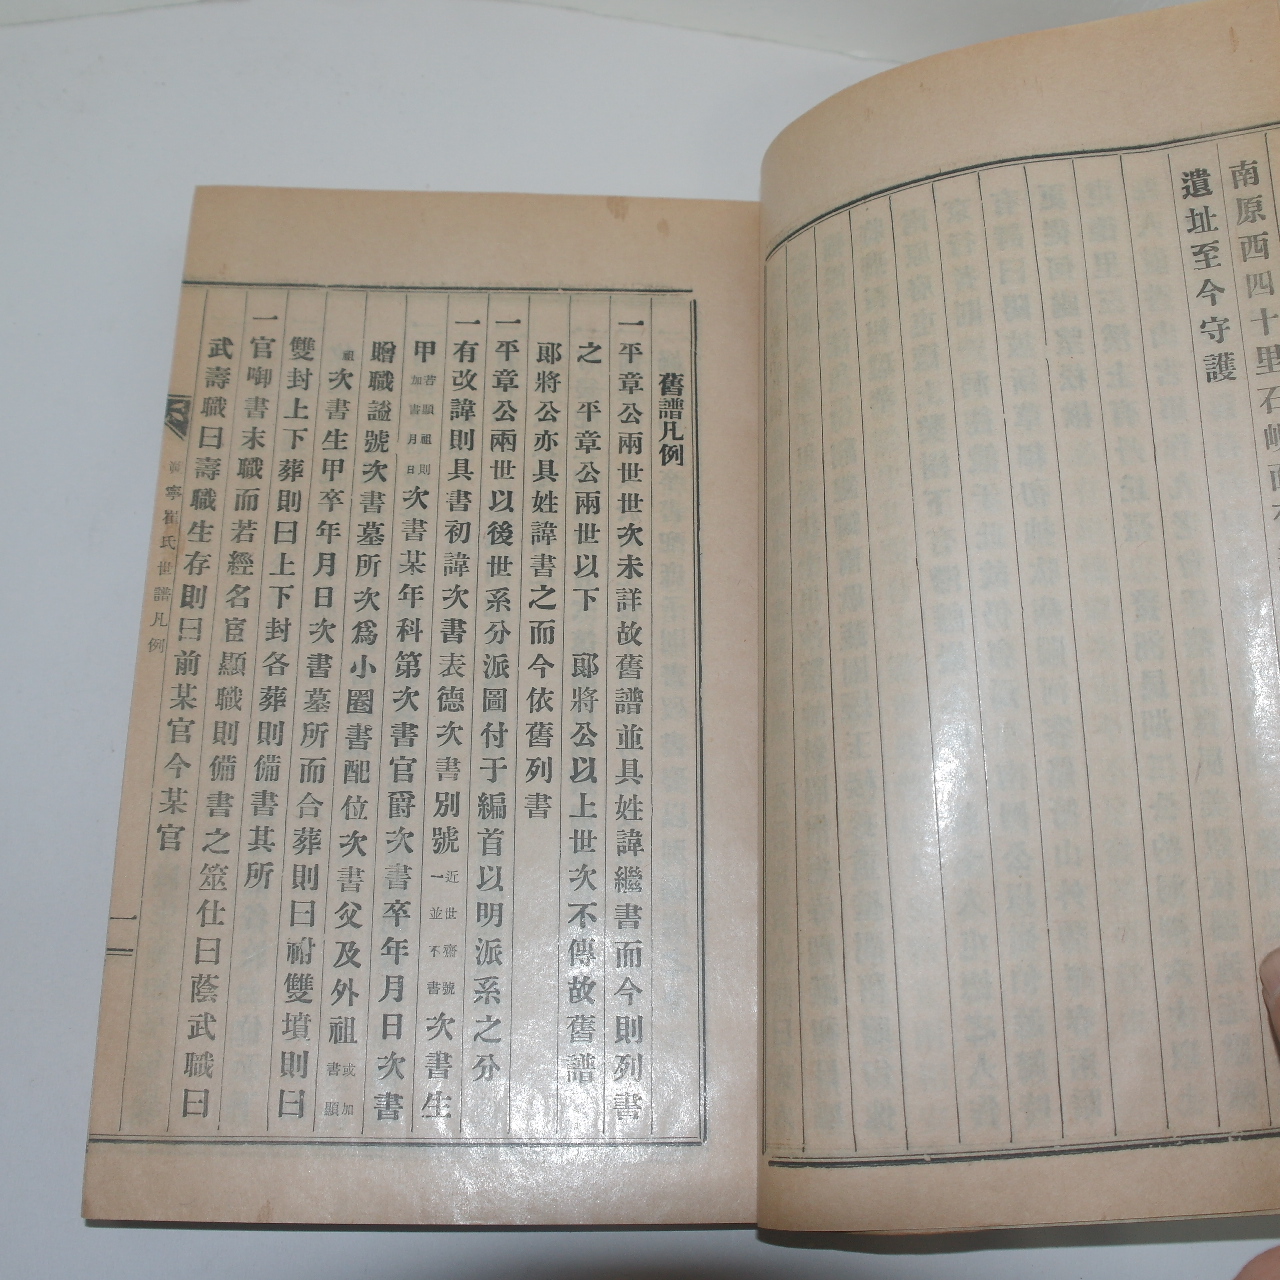 南原西四十里石
遺址至今守護
舊譜凡例
一平章公兩世世次未詳故舊譜並具姓諱繼書而今則列書
之 平章公兩世以下 郞將公以上世次不傳故舊譜
郞將公亦具姓諱書之而今依舊列書
一平章公兩世以後世系分派圖付于編首以明派系之分
一有改諱則具書初諱次書表德次書別號近世齋號一並不書次書生
甲若顯祖則加書月日次書某年科第次書官爵次書卒年月日次書
贈職諡號次書墓所次爲小圈書配位次書父及外祖或加書顯
祖次書生甲卒年月日次書墓所而合葬則曰祔雙墳則曰
雙封上下葬則曰上下封各葬則備書其所
一官啣書末職而若經名宦顯職則備書之筮仕曰蔭武職曰
武壽職曰壽職生存則曰前某官今某官
寧崔氏世譜凡例
一